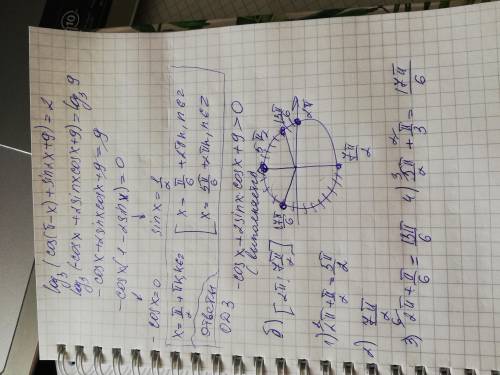 log₃(cos(π-x)+sin2x+9)=2
log₃(-cosx+2sinxcosx+9)=log₃9
-cosx+2sinxcosx+9=9
-cosx(1-2sinx)=0
-cosx=0 sinx=1/2
x=π/2+πk, k∈Z [x=π/6+2πn, n∈Z
x=5π/6+2πn, n∈Z
ответы
ОДЗ -cosx+2sinx·cosx+9>0
(выполняется)
б) [2π; 7π/2]
17π/6 5π/2 13π/6 2π 7π/2
1) 2π+π/2=5π/2
2) 7π/2
3) 2π+π/6=13π/6 4)
=17π/6
10